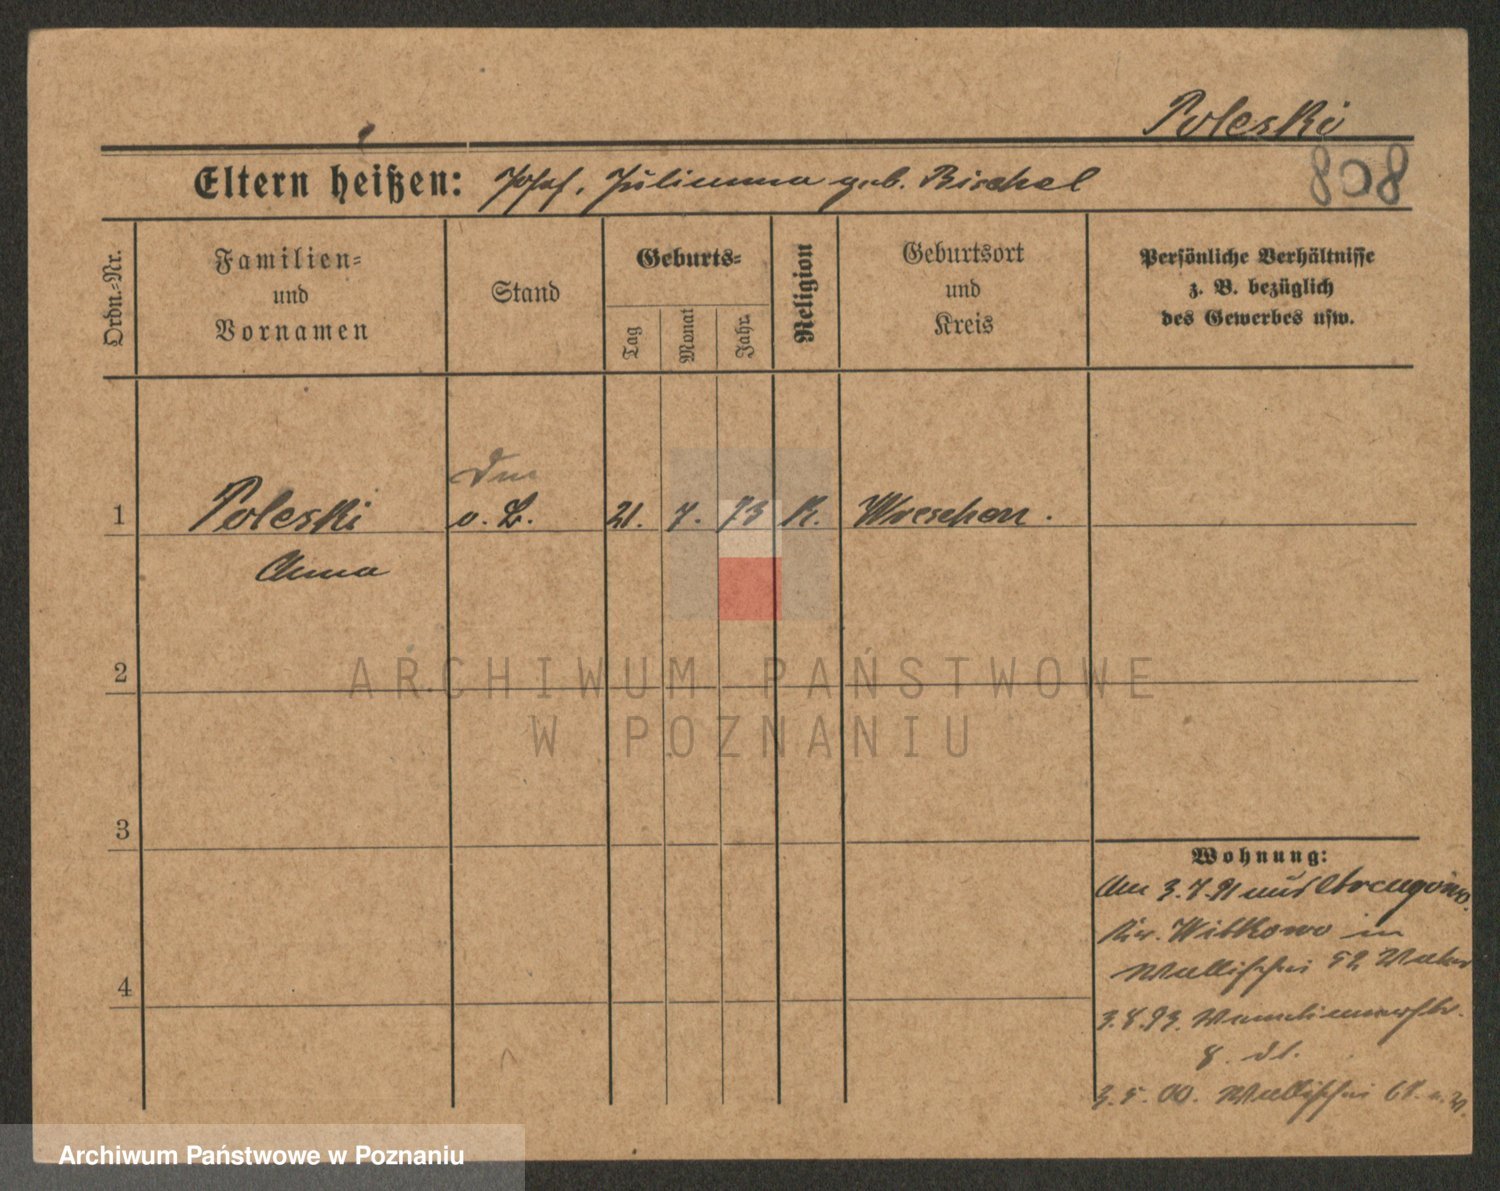 Poleski
808
Eltern heißen: Josef, Julianna geb. Bischel
Ordn.-Nr.
Familien-
und
Vornamen
Stand
Geburts-
Tag
Monat
Jahr.
Religion
Geburtsort
und
Kreis
Persönliche Verhältnisse
z. B. bezüglich
des Gewerbes usw.
1 Poleski v. L. 21. 7. 73 K. Wreschen.
Anna
2
3
4
Wohnung:
Am 3.7.91 aus
Kr. Witkowo in
Wallischei 52
3.8.93.
8.
3.5.00. Wallischei
ARCHIWUM PAŃSTWOWE
W POZNANIU
Archiwum Państwowe w Poznaniu